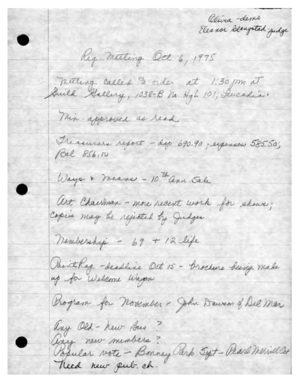 Olivia - demo
Eleanor judge
Reg Meeting Oct 6, 1975
Meeting called to order at 1:30 pm at
Guild Gallery, 1038-B No Hgh 101, Leucadia.
Min. approved as read
Treasurers report - bap 690.90; expenses 585.50;
Bal
Ways & Means - 10th Ann Sale
Art Chairman - more recent work for shows;
copies may be rejected by Judges
Membership - 69 + 12 life
- deadline Oct 15 - brochure being made
up for Welcome Wagon
Program for November - John Dawson of Del Mar
Any Old - new bus?
Any new members?
Popular vote - Park Sept - Pearl
Need new pub. ch.